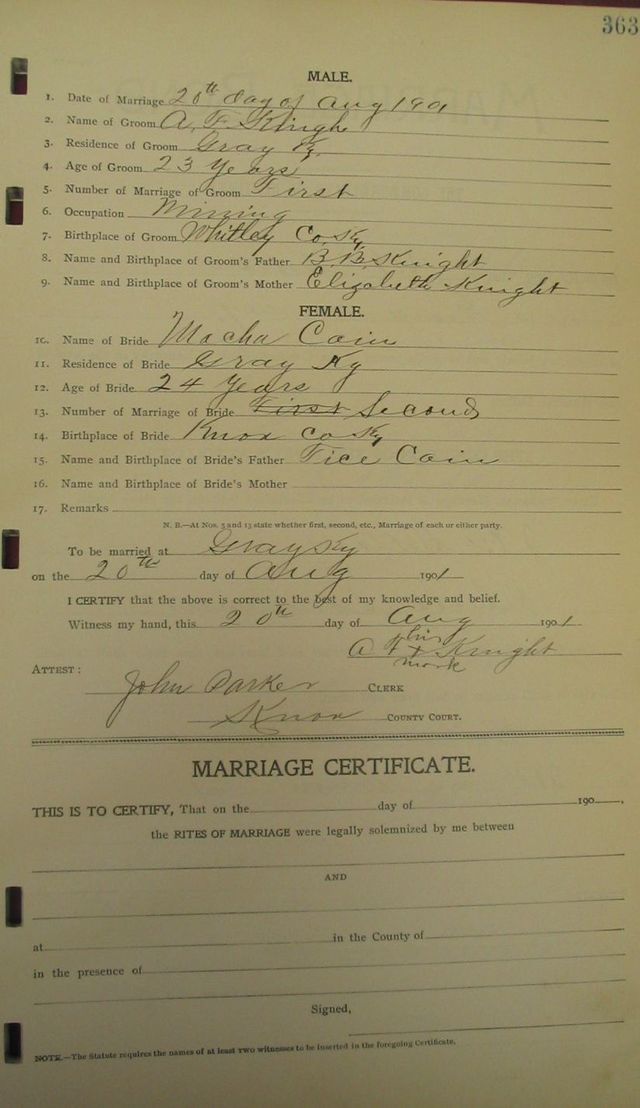 363
MALE.
1. Date of Marriage 20th day of Aug 1901
2. Name of Groom A. F. Knight
3. Residence of Groom Gray Ky
4. Age of Groom 23 Years
5. Number of Marriage of Groom First
6. Occupation Mining
7. Birthplace of Groom Whitley Co. Ky
8. Name and Birthplace of Groom's Father B. B. Knight
9. Name and Birthplace of Groom's Mother Elizabeth Knight
FEMALE.
10. Name of Bride Macha Cain
11. Residence of Bride Gray Ky
12. Age of Bride 24 Years
13. Number of Marriage of Bride First Second
14. Birthplace of Bride Knox Co Ky
15. Name and Birthplace of Bride's Father Tice Cain
16. Name and Birthplace of Bride's Mother
17. Remarks
N. B.—At Nos. 5 and 13 state whether first, second, etc., Marriage of each or either party.
To be married at Grays Ky
on the 20th day of Aug 1901
I CERTIFY that the above is correct to the best of my knowledge and belief.
Witness my hand, this 20th day of Aug 1901
his
A F x Knight
mark
ATTEST:
John Parker CLERK
Knox COUNTY COURT.
MARRIAGE CERTIFICATE.
THIS IS TO CERTIFY, That on the day of 190 .
the RITES OF MARRIAGE were legally solemnized by me between
AND
at in the County of
in the presence of
Signed,
NOTE.—The Statute requires the names of at least TWO witnesses to be inserted in the foregoing Certificate.